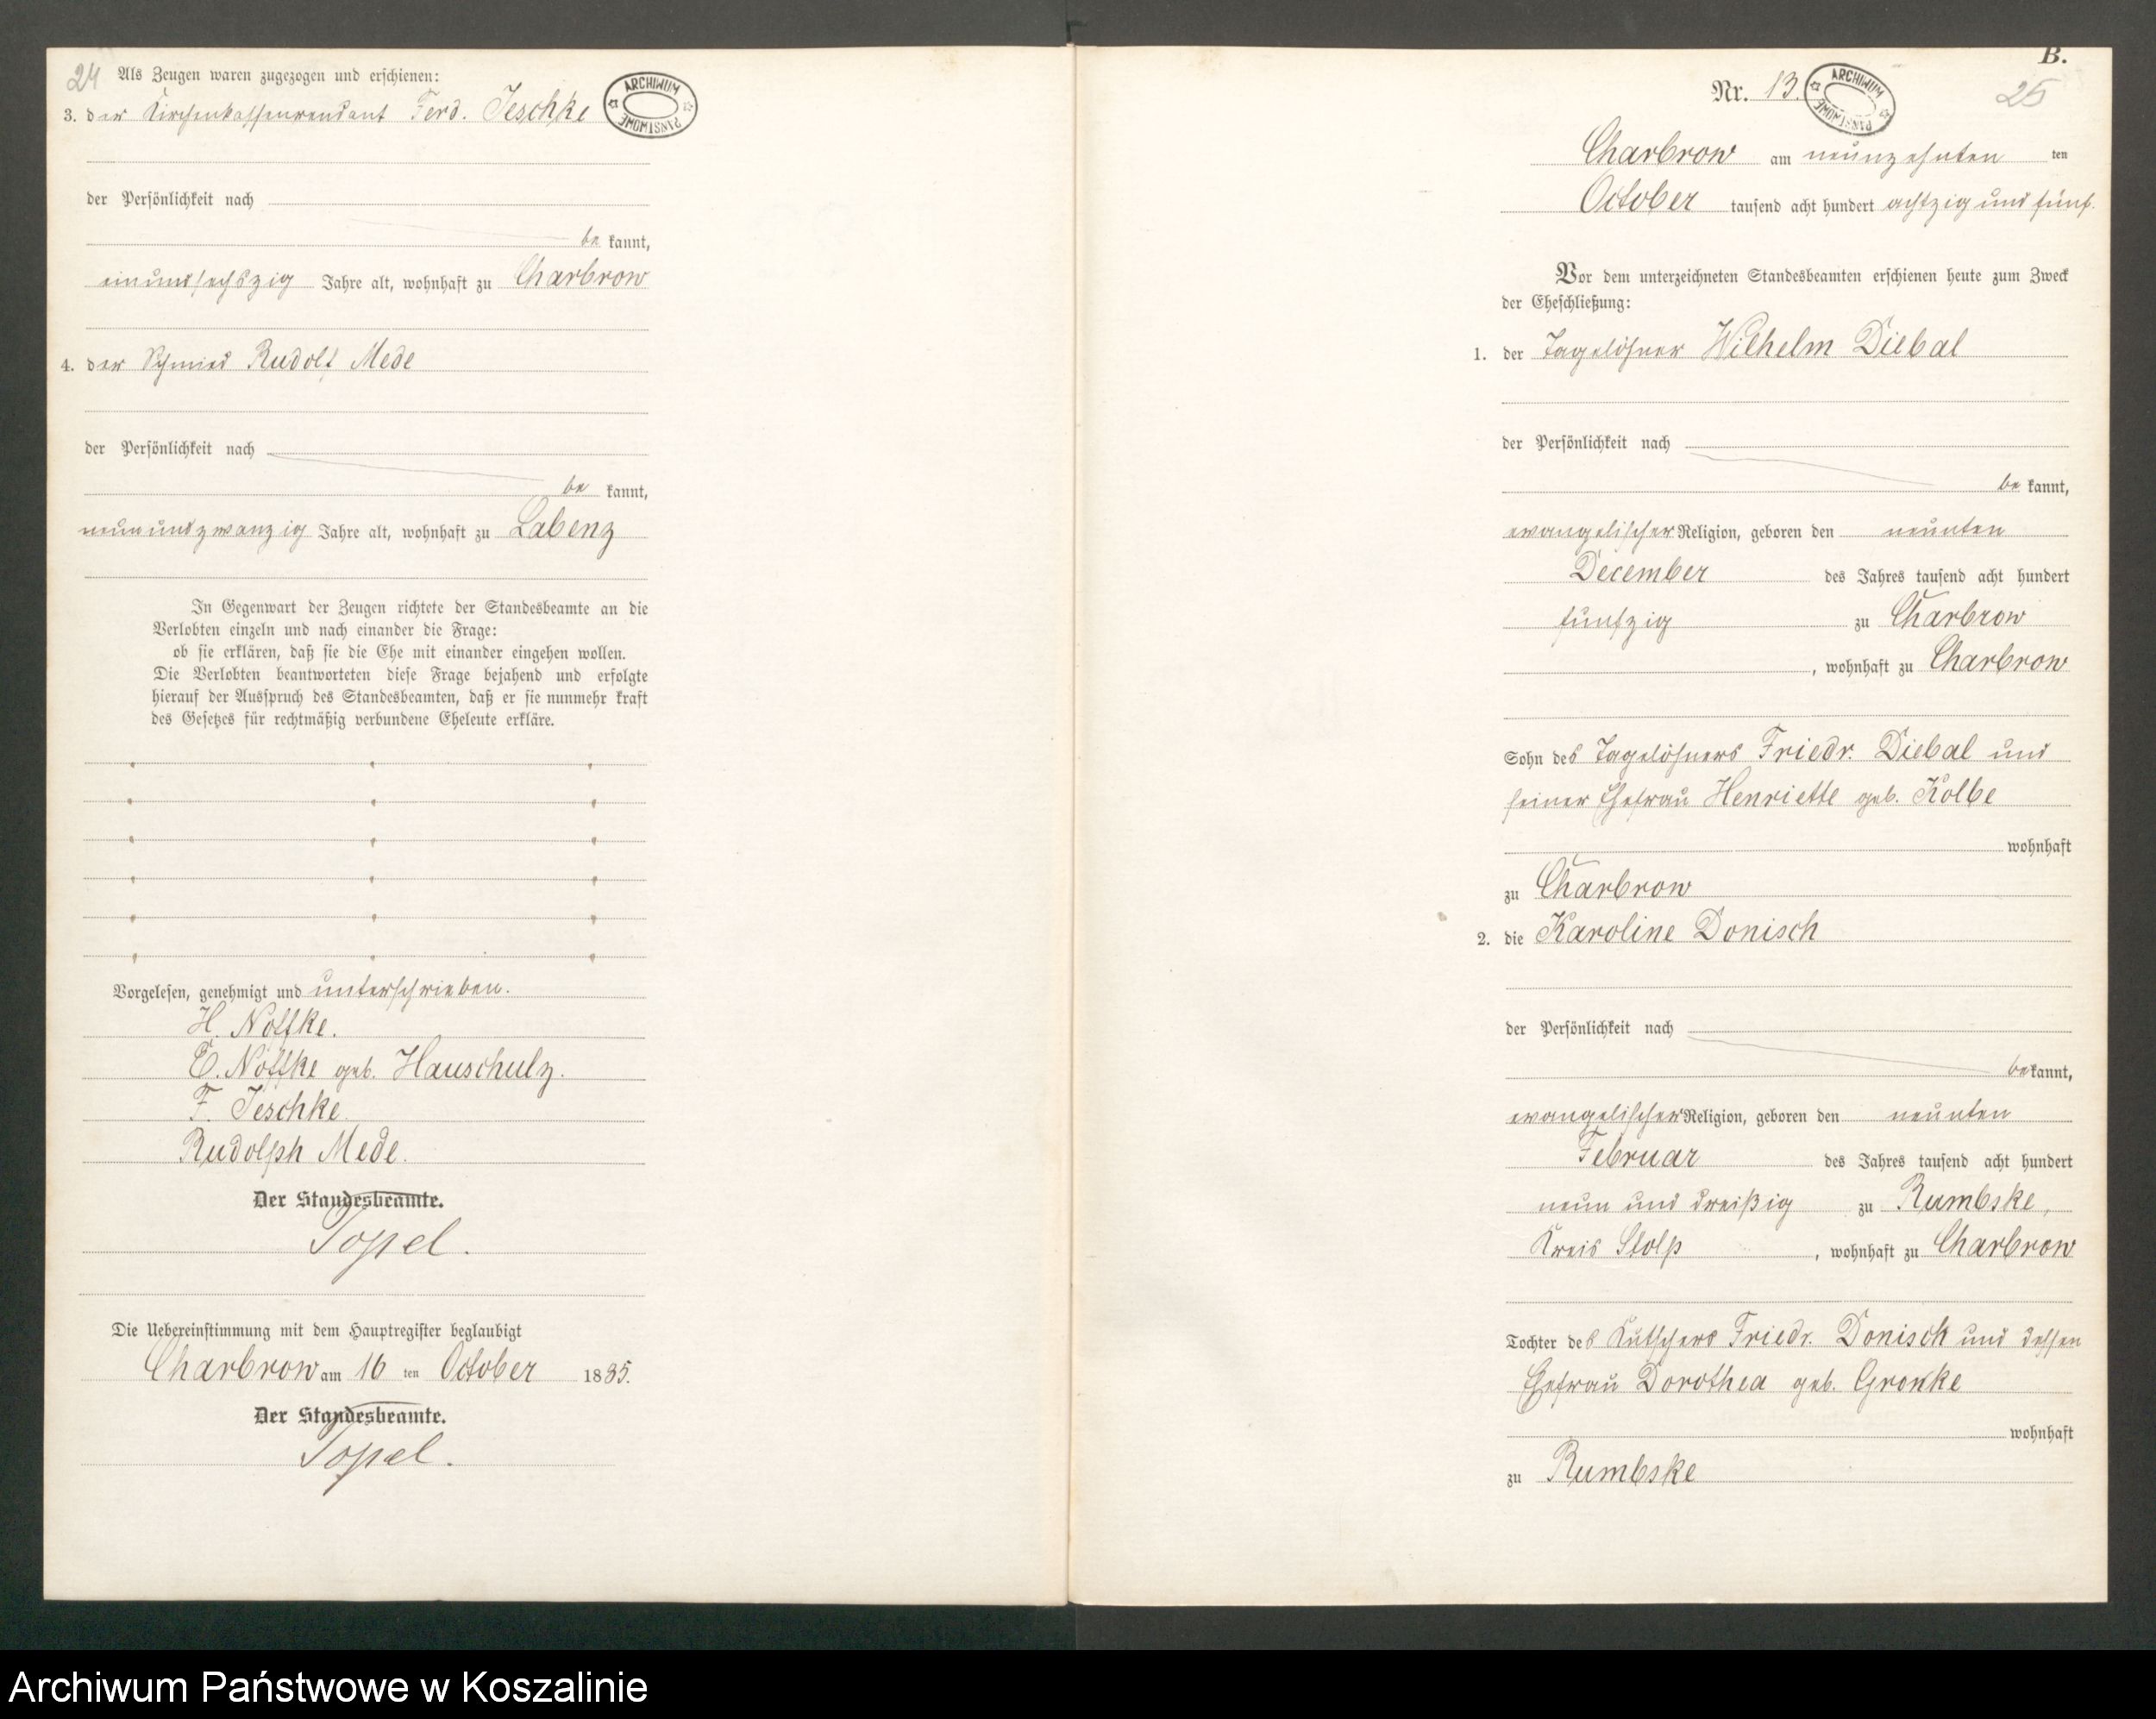 24 Als Zeugen waren zugezogen und erschienen:
3. der Kirchenkassenrendant Ferd. Jeschke
ARCHIWUM PAŃSTWOWE
der Persönlichkeit nach
be kannt,
einundsechszig Jahre alt, wohnhaft zu Charbrow
4. der Schmied Rudolf Mede
der Persönlichkeit nach
be kannt,
neunundzwanzig Jahre alt, wohnhaft zu Labenz
In Gegenwart der Zeugen richtete der Standesbeamte an die
Verlobten einzeln und nach einander die Frage:
ob sie erklären, daß sie die Ehe mit einander eingehen wollen.
Die Verlobten beantworteten diese Frage bejahend und erfolgte
hierauf der Ausspruch des Standesbeamten, daß er sie nunmehr kraft
des Gesetzes für rechtmäßig verbundene Eheleute erkläre.
Vorgelesen, genehmigt und unterschrieben.
H. Noffke.
E. Noffke geb. Hauschulz.
F. Jeschke.
Rudolph Mede.
Der Standesbeamte.
Topel.
Die Uebereinstimmung mit dem Hauptregister beglaubigt
Charbrow am 16 ten October 1885.
Der Standesbeamte.
Topel.
B.
Nr. 13.
ARCHIWUM PAŃSTWOWE
25
Charbrow am neunzehnten ten
October tausend acht hundert achtzig und fünf.
Vor dem unterzeichneten Standesbeamten erschienen heute zum Zweck
der Eheschließung:
1. der Tagelöhner Wilhelm Diebal
der Persönlichkeit nach
be kannt,
evangelischer Religion, geboren den neunten
December des Jahres tausend acht hundert
fünfzig zu Charbrow
, wohnhaft zu Charbrow
Sohn des Tagelöhners Friedr. Diebal und
seiner Ehefrau Henriette geb. Kolbe
wohnhaft
zu Charbrow
2. die Karoline Donisch
der Persönlichkeit nach
be kannt,
evangelischer Religion, geboren den neunten
Februar des Jahres tausend acht hundert
neun und dreißig zu Rumbske,
Kreis Stolp , wohnhaft zu Charbrow
Tochter des Kutschers Friedr. Donisch und dessen
Ehefrau Dorothea geb. Gronke
wohnhaft
zu Rumbske
Archiwum Państwowe w Koszalinie